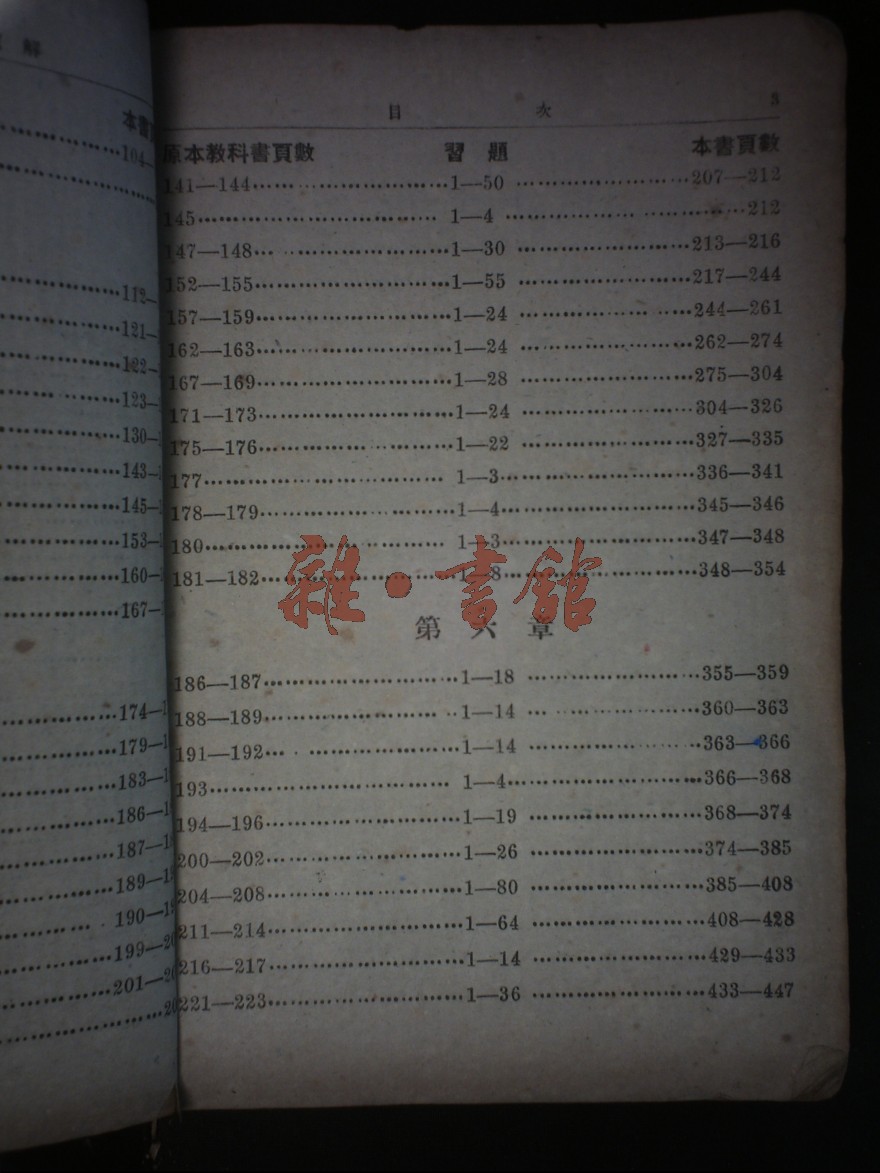 解
本書頁
104—
112—
121—
122—
123—
130—
143—
145—
153—
160—
167—
174—
179—
183—
186—
187—
189—
190—
199—
201—
目 次 3
原本教科書頁數 習題 本書頁數
141—144 1—50 207—212
145 1—4 212
147—148 1—30 213—216
152—155 1—55 217—244
157—159 1—24 244—261
162—163 1—24 262—274
167—169 1—28 275—304
171—173 1—24 304—326
175—176 1—22 327—335
177 1—3 336—341
178—179 1—4 345—346
180 1—3 347—348
181—182 1—8 348—354
雜·書館
第六章
186—187 1—18 355—359
188—189 1—14 360—363
191—192 1—14 363—366
193 1—4 366—368
194—196 1—19 368—374
200—202 1—26 374—385
204—208 1—80 385—408
211—214 1—64 408—428
216—217 1—14 429—433
221—223 1—36 433—447